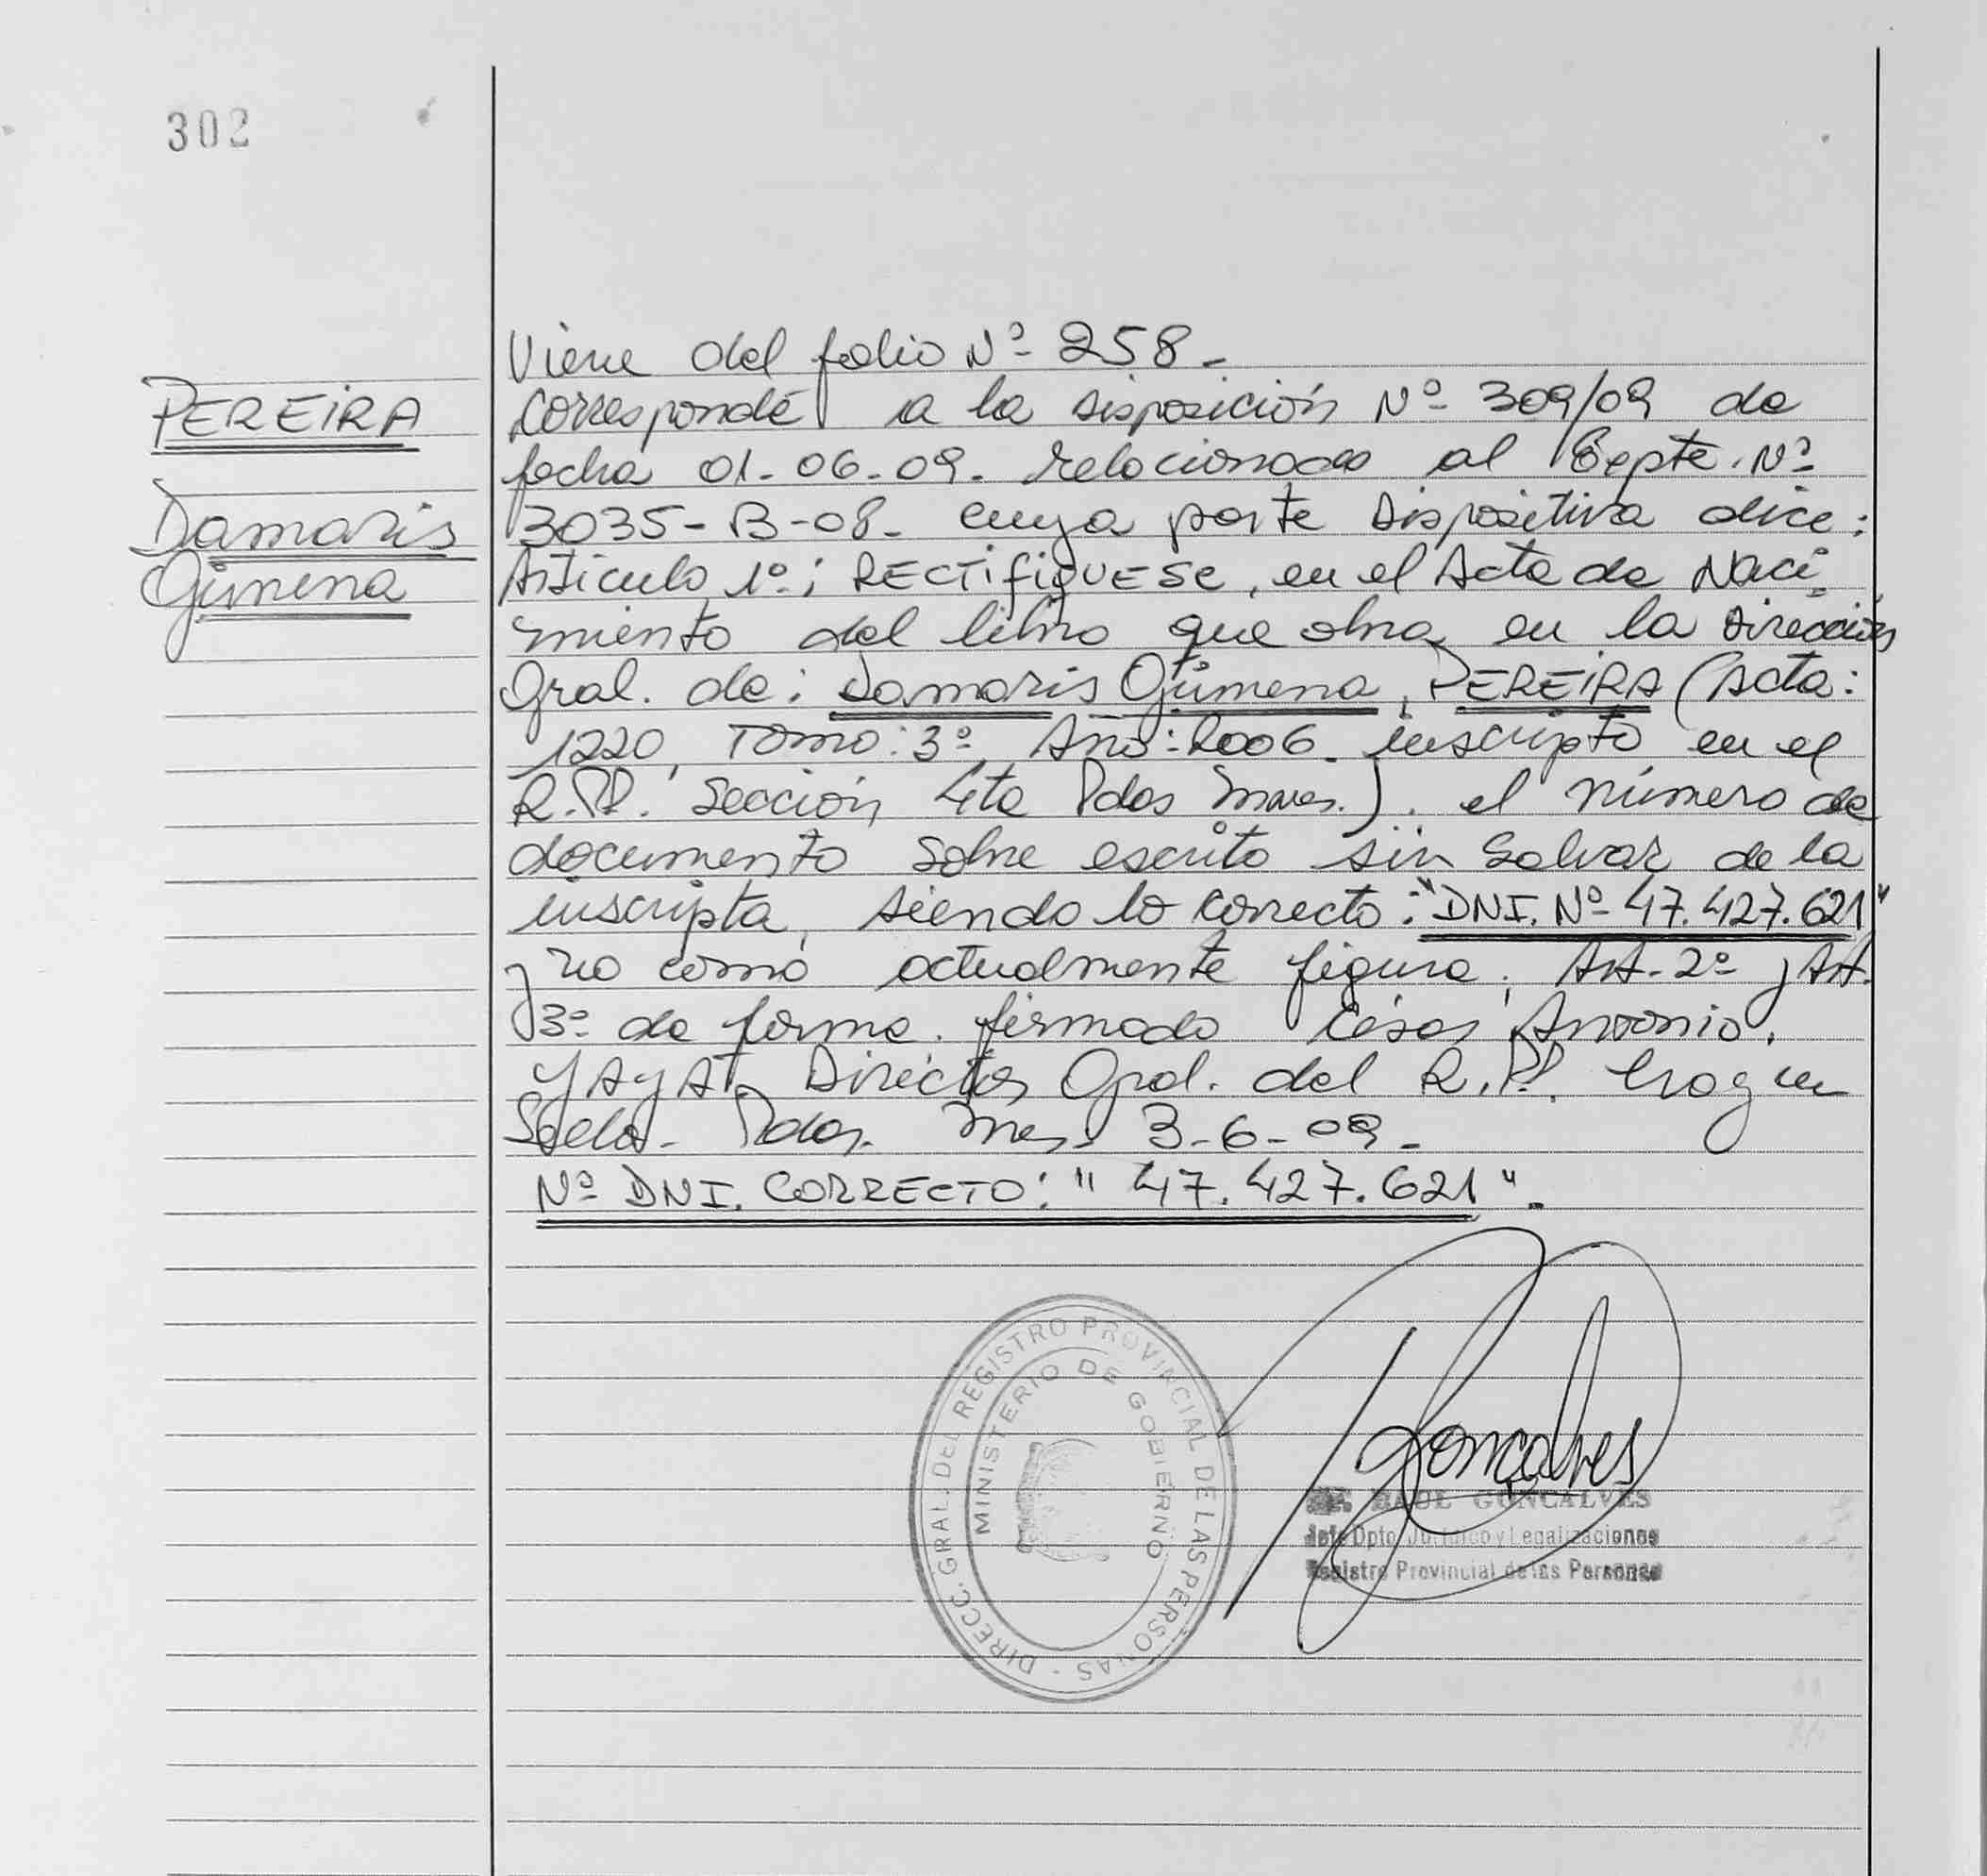 302
PEREIRA
Damaris
Gimena
Viene del folio Nº 258-
Corresponde a la disposición Nº 309/09 de
fecha 01-06-09- relacionado al Expte. Nº
3035-B-08- cuya parte dispositiva dice:
Artículo 1º: RECTIFIQUESE, en el Acta de Naci
miento del libro que obra en la dirección
Gral. de: Damaris Gimena, PEREIRA (Acta:
1220, Tomo: 3º, Año: 2006. inscripto en el
R.PP. Sección 4ta Pdas Mnes.). el número de
documento sobre escrito sin salvar de la
inscripta, siendo lo correcto: "DNI. Nº 47.427.621"
y no como actualmente figura, Art. 2º y Art.
3º de forma. firmado César Antonio.
YAYAT, Director Gral. del R.PP. hay un
Sello- Pdas. Mnes 3-6-09-
Nº DNI. CORRECTO: "47.427.621".
DIRECC. GRAL. DEL REGISTRO PROVINCIAL DE LAS PERSONAS -
MINISTERIO DE GOBIERNO
Gonçalves
RAUL GONCALVES
Jefe Dpto. Jurídico y Legalizaciones
Registro Provincial de las Personas